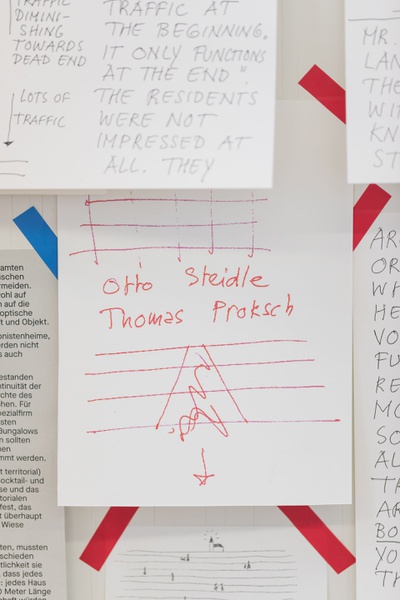 TRAFFIC
DIMINI-
SHING
TOWARDS
DEAD END
LOTS OF
TRAFFIC
TRAFFIC AT
THE BEGINNING.
IT ONLY FUNCTIONS
AT THE END".
THE RESIDENTS
WERE NOT
IMPRESSED AT
ALL. THEY
MR.
LAN
THE
WIT
KN
ST
Otto Steidle
Thomas Proksch
amten
ischen
rmeiden.
vohl auf
auf die
optische
t und Objekt.
onistenheime,
erden nicht
s auch
estanden
ntinuität der
chte des
hen. Für
pezialfirm
sten
Bungalows
n sollten
nen
mmt werden.
t territorial)
ocktail- und
se und das
torialen
fest, das
t überhaupt
Wiese
ten, mussten
schieden
tlichkeit sie
dass jedes
: jedes Haus
0 Meter Länge
AR
OR
WH
HE
VO
FU
RE
MO
SO
AL
TH
AR
BO
YO
TH